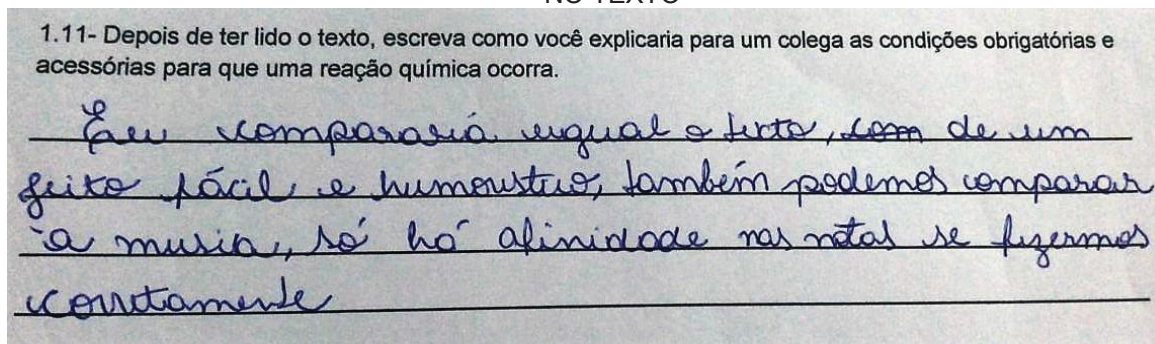 NO TEXTO
1.11- Depois de ter lido o texto, escreva como você explicaria para um colega as condições obrigatórias e
acessórias para que uma reação química ocorra.
Eeu compararia igual o texto, com de um
jeito fácil, e humoustico, também podemos comparar
a musica, só há afinidade nas notas se fizermos
corretamente